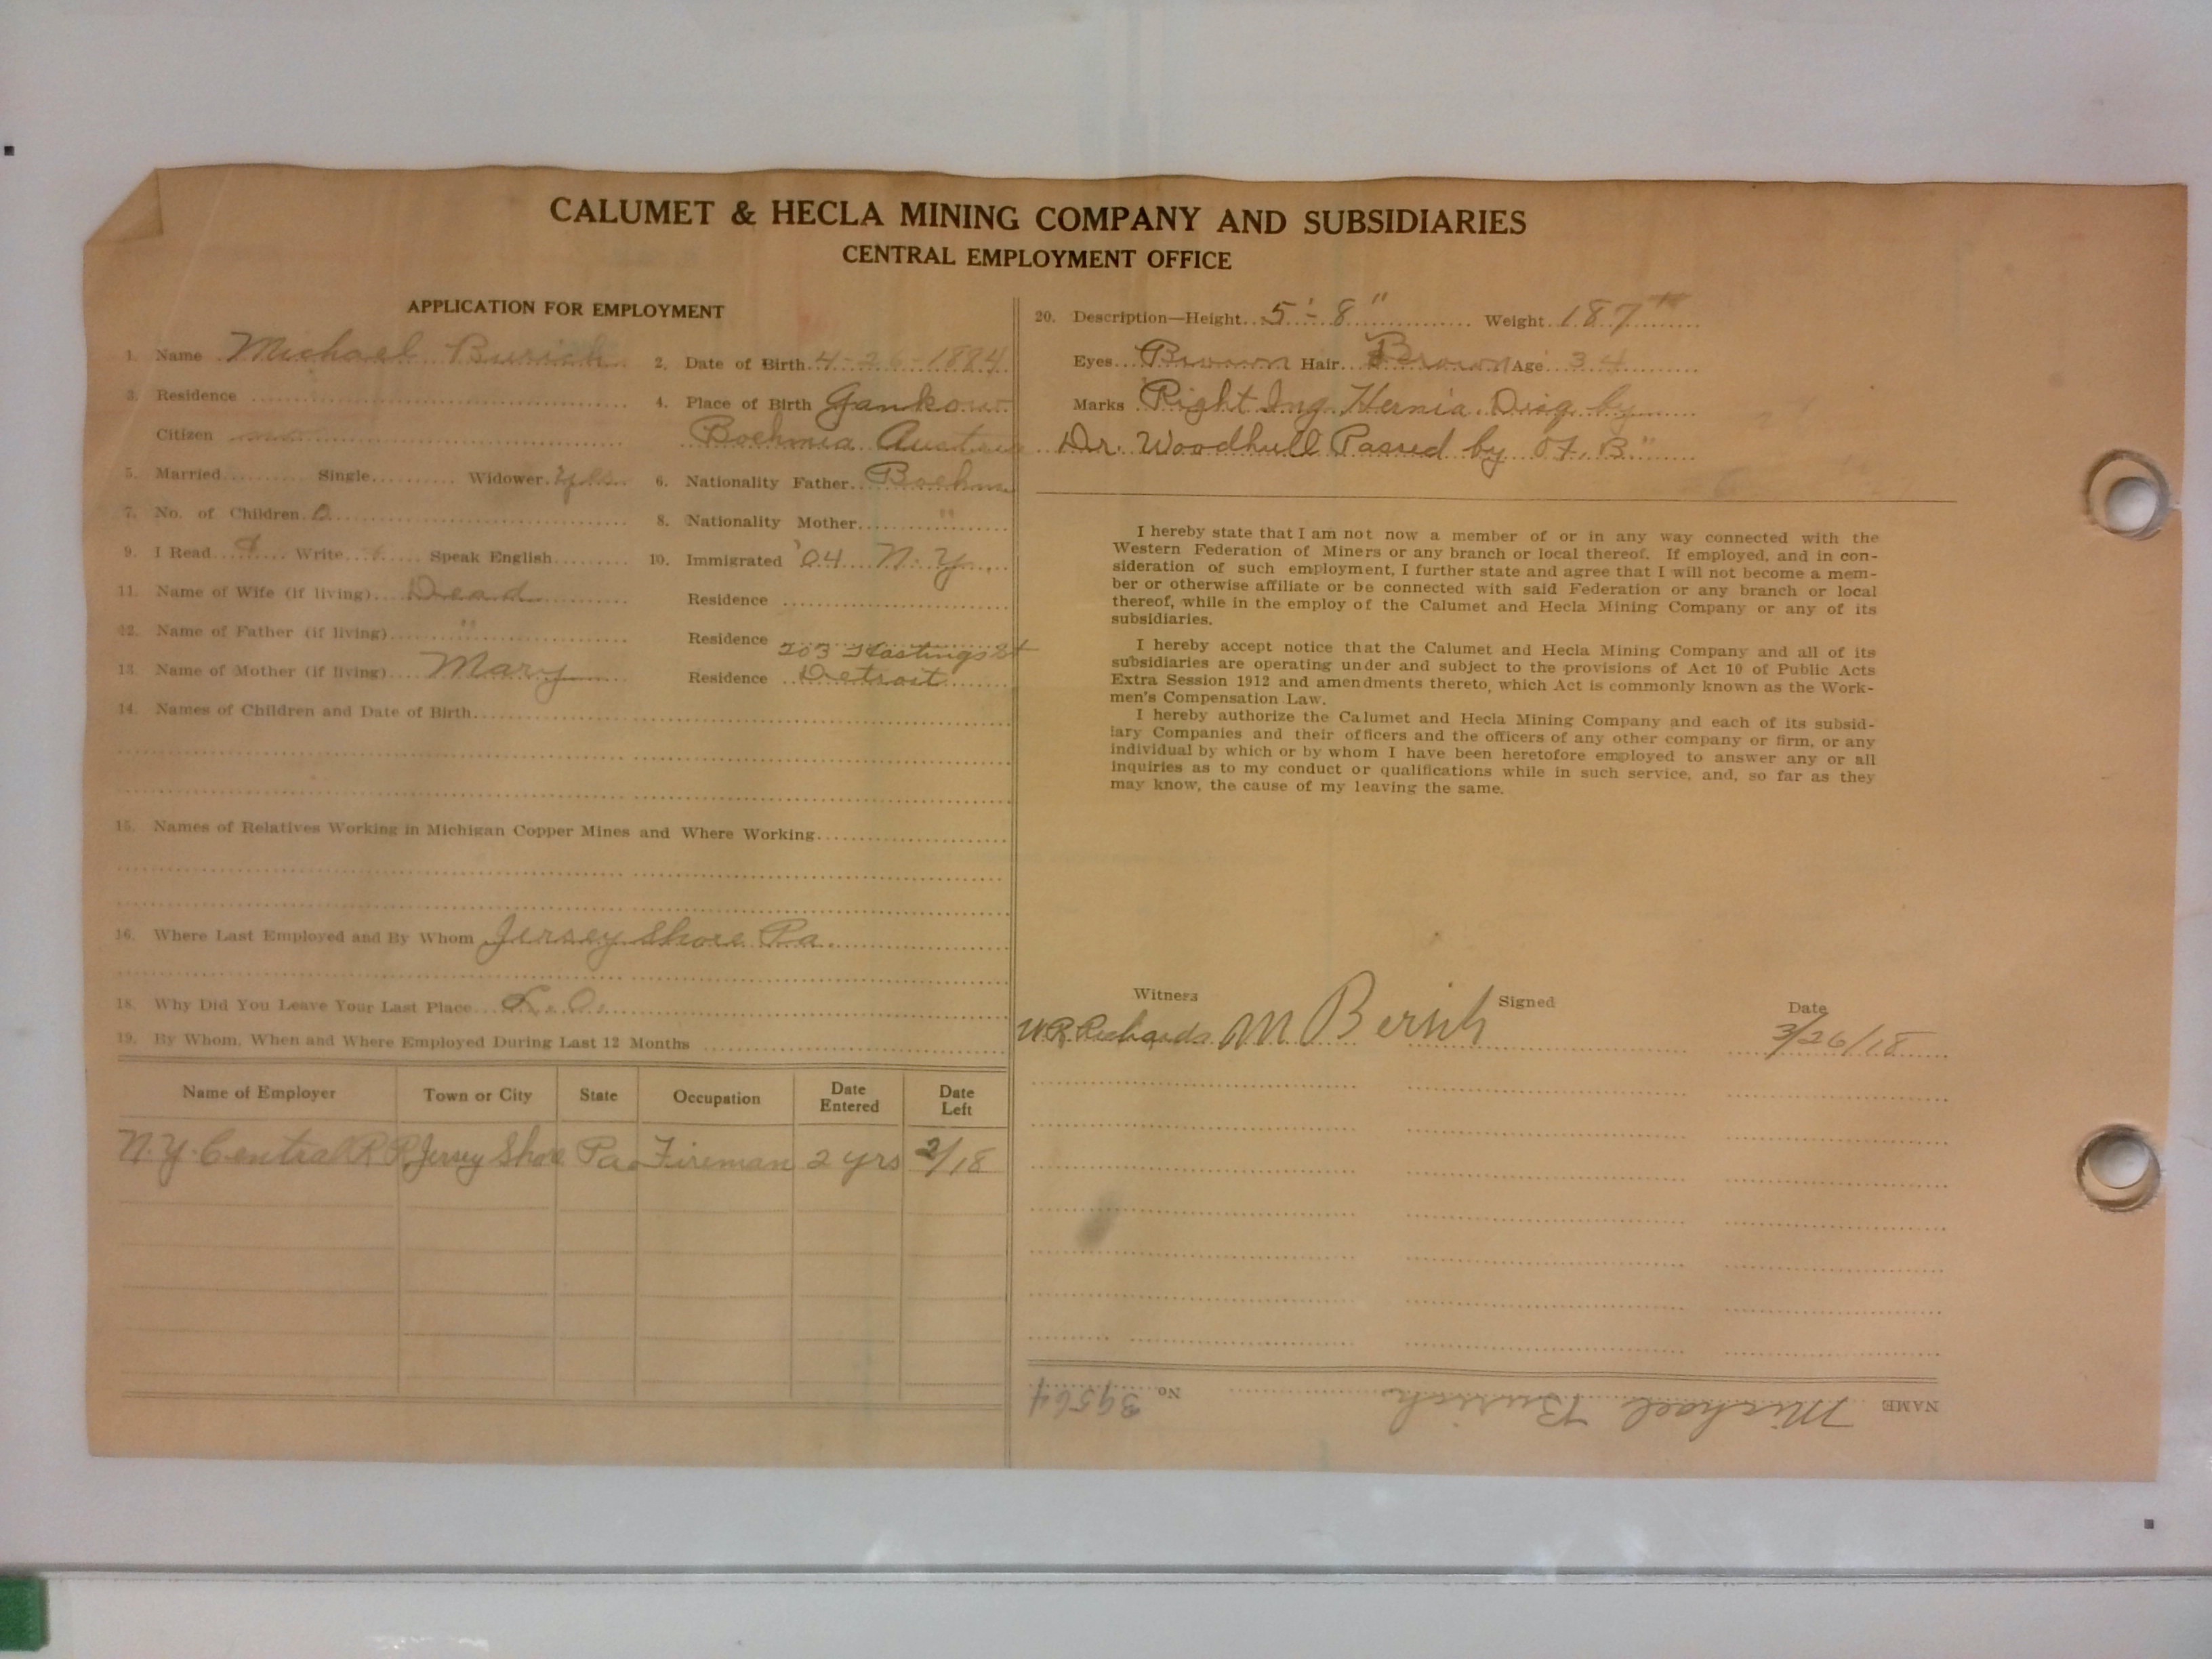 CALUMET & HECLA MINING COMPANY AND SUBSIDIARIES
CENTRAL EMPLOYMENT OFFICE
APPLICATION FOR EMPLOYMENT
1. Name Michael Burich 2. Date of Birth 4-26-1884
3. Residence 4. Place of Birth Gankow
Citizen no Boehmia Austria
5. Married Single Widower yes 6. Nationality Father Boehm
7. No. of Children 0 8. Nationality Mother "
9. I Read Write Speak English 10. Immigrated '04 N.Y.
11. Name of Wife (if living) Dead Residence
12. Name of Father (if living) " Residence
203 Hastings St
13. Name of Mother (if living) Mary Residence Detroit
14. Names of Children and Date of Birth
15. Names of Relatives Working in Michigan Copper Mines and Where Working
16. Where Last Employed and By Whom Jersey Shore Pa.
18. Why Did You Leave Your Last Place
19. By Whom, When and Where Employed During Last 12 Months
Name of Employer Town or City State Occupation Date Entered Date Left
N.Y. Central R R Jersey Shore Pa. Fireman 2 yrs 2/18
20. Description—Height 5'-8" Weight 187
Eyes Brown Hair Brown Age 34
Marks Right Ing. Hernia. Diag by
Dr. Woodhull Passed by
I hereby state that I am not now a member of or in any way connected with the
Western Federation of Miners or any branch or local thereof. If employed, and in con-
sideration of such employment, I further state and agree that I will not become a mem-
ber or otherwise affiliate or be connected with said Federation or any branch or local
thereof, while in the employ of the Calumet and Hecla Mining Company or any of its
subsidiaries.
I hereby accept notice that the Calumet and Hecla Mining Company and all of its
subsidiaries are operating under and subject to the provisions of Act 10 of Public Acts
Extra Session 1912 and amendments thereto, which Act is commonly known as the Work-
men's Compensation Law.
I hereby authorize the Calumet and Hecla Mining Company and each of its subsid-
iary Companies and their officers and the officers of any other company or firm, or any
individual by which or by whom I have been heretofore employed to answer any or all
inquiries as to my conduct or qualifications while in such service, and, so far as they
may know, the cause of my leaving the same.
Witness Signed Date
W.R. Richards M Berich 3/26/18
NAME Michael Burich No. 39564